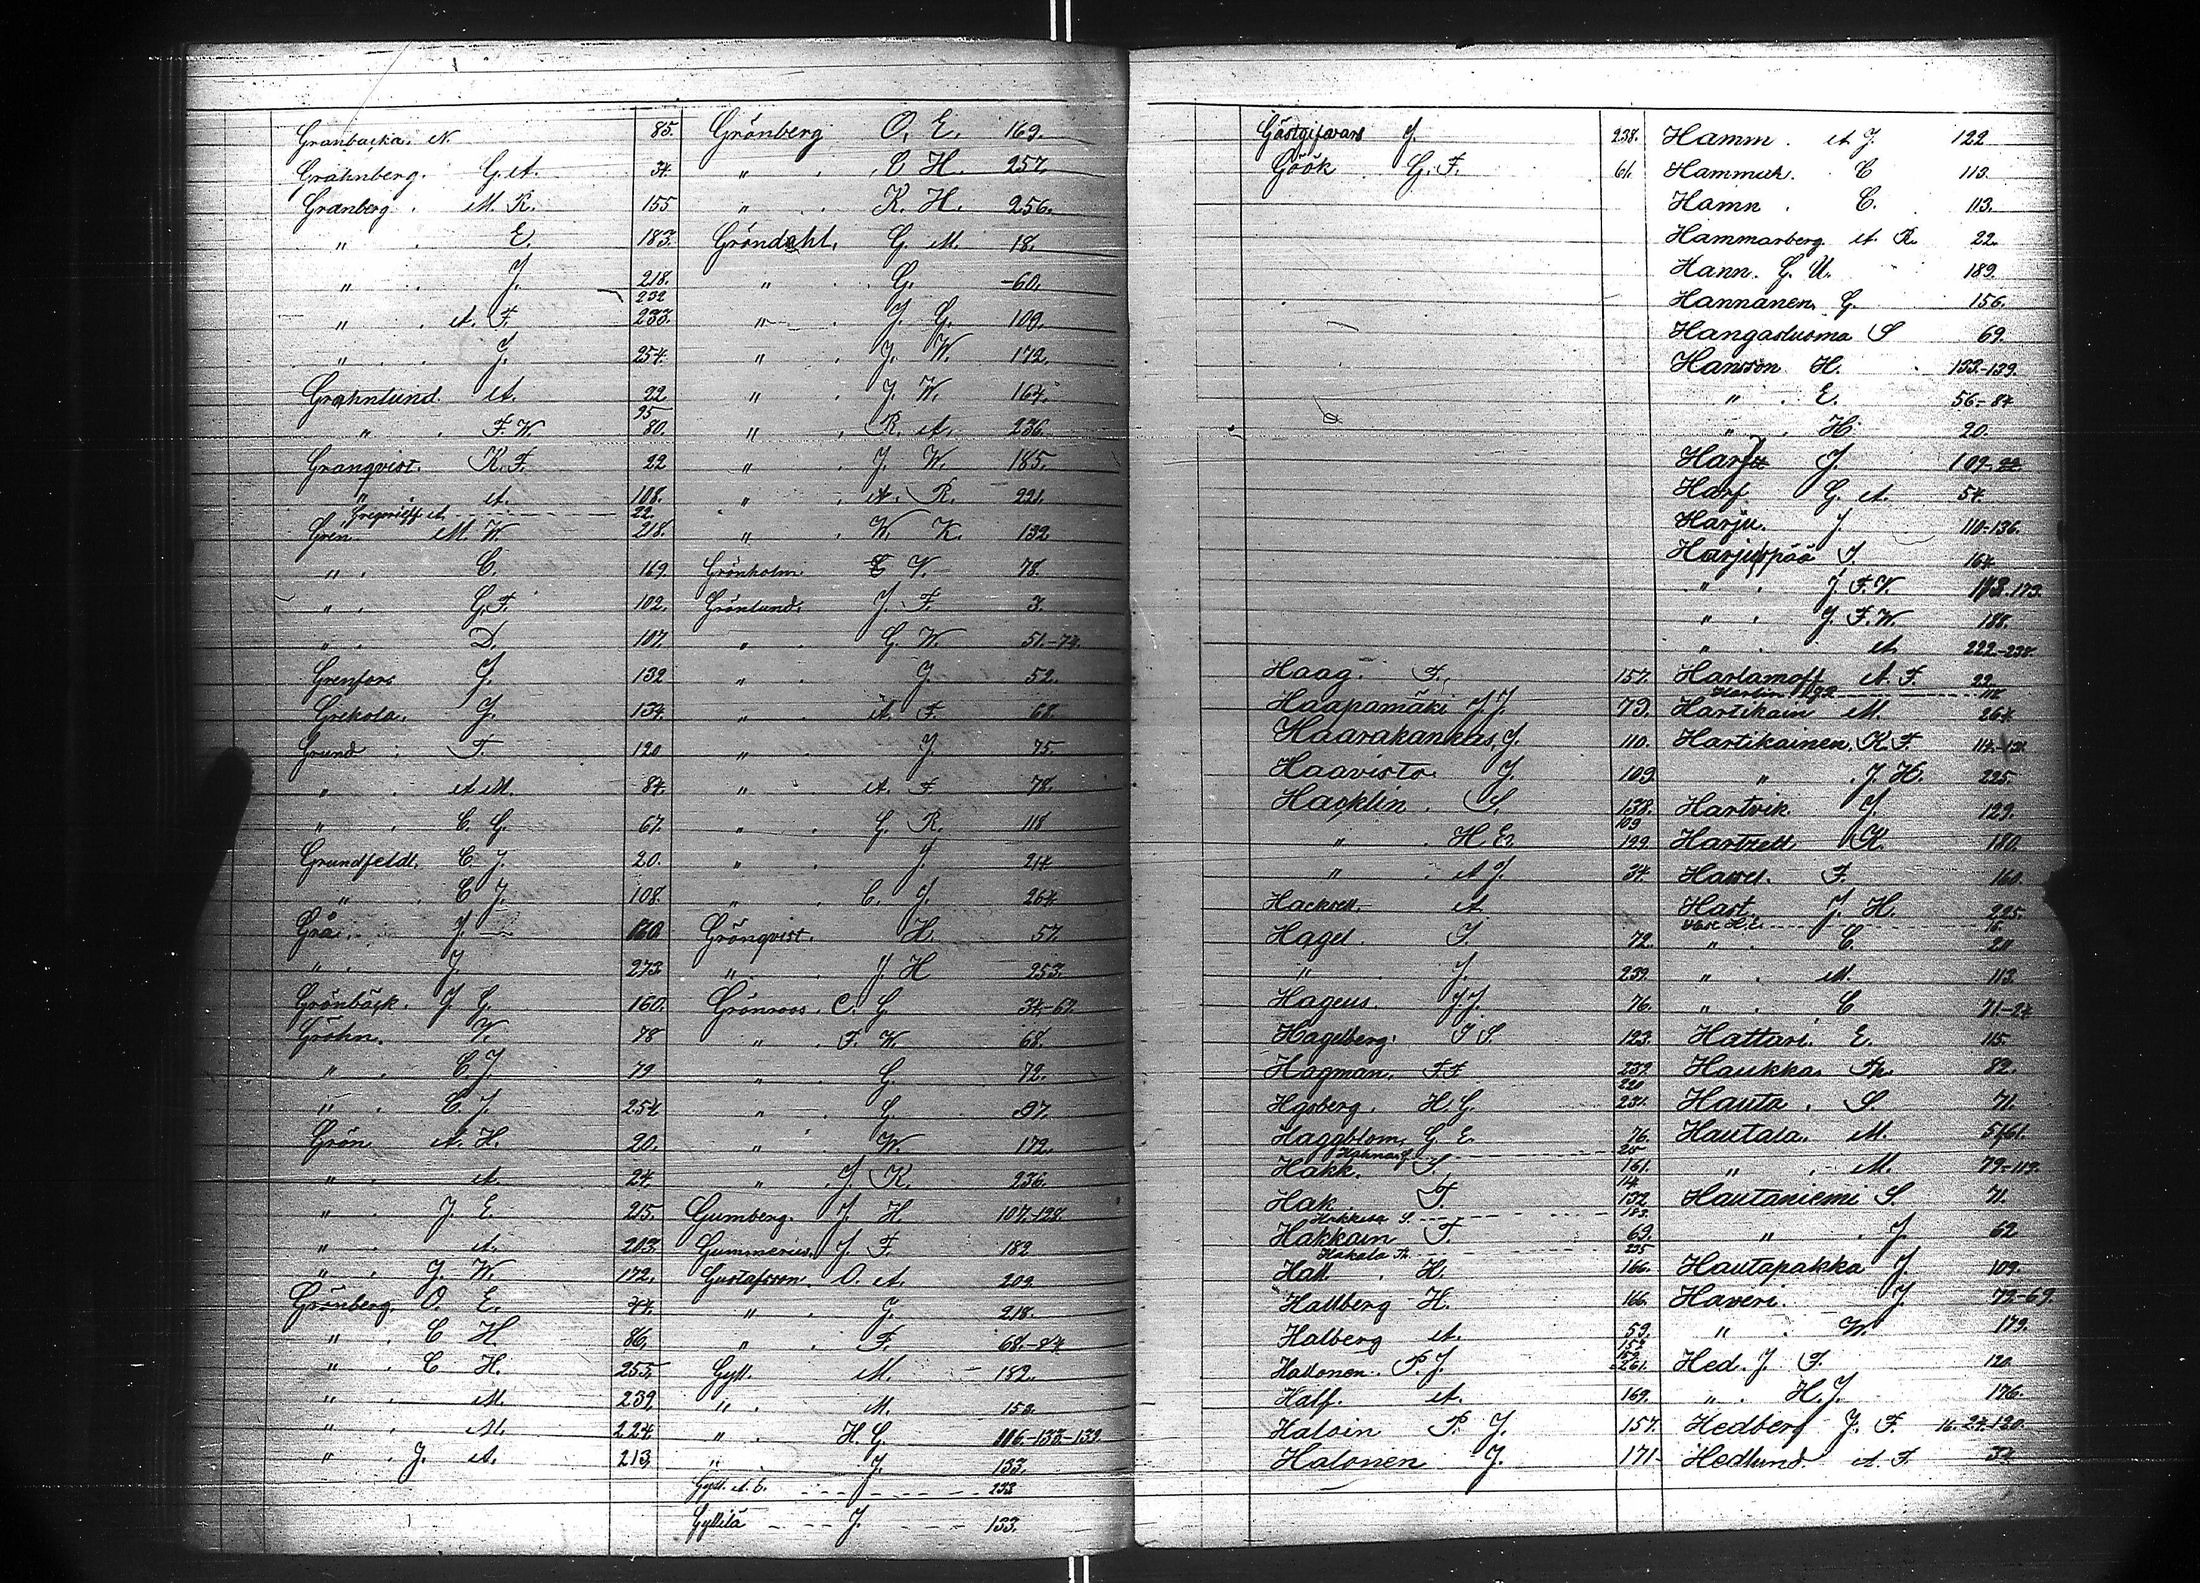 Granbacka. N. 85.
Grahnberg. G. A. 34.
Granberg. M. R. 155
" . E. 183.
" . J. 218.
232
" . A. F. 233.
" . J. 254.
Grahnlund A. 22
95
" . F. W. 80.
Granqvist. K. F. 22
" A. 108.
22.
Gren M. W. 218.
" . C. 169.
" . G. F. 102.
" . D. 107.
Grenfors J. 132
Grekola. J. 134.
Grund . F. 120
" . A M. 84.
" . C. G. 67.
Grundfeldt. C. J. 20.
" . C J. 108.
Grå. J.
" . J. 273
Grönbäck. J. G. 160.
Gröhn. V. 78
" . C. J. 79
" . C. J. 254
Grön A. H. 20.
" . A. 24.
" . J. E. 215.
" . A. 203.
" . J. W. 172.
Grönberg. O. E. 44.
" . C H. 86.
" . C H. 255.
" . M. 239.
" . M. 224.
" . J. A. 213.
Grönberg O. E. 169.
" . C H. 257.
" . K. H. 256.
Gröndahl. G. M. 18.
" . G. 60.
" . J. G. 109.
" . J. W. 172.
" . J. W. 164.
" . R. A. 236.
" . J. W. 185.
" . A. R. 221.
" . W. K. 132
Grönholm V. 78.
Grönlund. J. F. 3.
" . G. W. 51.-74.
" . J. 52.
" . A. F. 68.
" J. 75.
" . A. F. 78.
" . G. R. 118
" . J. 214
" . C. J. 264
Grönqvist. H. 57.
" . J. H 253.
Grönroos. C. G. 34.-67.
" . F. W. 68.
" . G. 72.
" . G. 97.
" . W. 172.
" . J. K. 236.
Gumberg. J. H. 107.-128.
Gummerus. J. F. 182
Gustafsson. O. A. 209.
" . J. 218.
" . F. 68.-24
Gyll. M. 182.
" . M. 150.
" . H. G. 106.-133.-139.
" J. 133.
Gyll. A. E. 233
Gyllilä J. 133.
Gästgifvars J. 238.
Göök G. F. 61.
Haag. F. 157.
Haapamäki J. J. 79.
Haarakankas, J. 110.
Haavisto. J. 109.
Hacklin. S. 138.
109
" . H E. 199.
" . A J. 34.
Hacksell. A.
Hagel. S. 72.
" . J. 239.
Hageus. J. J. 76.
Hagelberg. S S. 123.
Hagman. F. F. 232
220
Hgsberg. H. G. 231.
Haggblom, G. E. 76.
25
Hakk. S. 161.
14.
Hak T. 132
Hakkila S. 183.
Hakkain T. 69.
Hakala Th. 235
Hall . H. 166.
Hallberg H. 166.
Halberg A. 59.
Hallonen. P. J. 261.
Half. A. 169.
Haloin P. J. 157.
Halonen J. 171.
Hamm. A J. 122
Hammuk. C 113.
Hamn . C. 113.
Hammarberg A. R. 22.
Hann. G. U. 189.
Hannanen G. 156.
Hangasluoma S 69.
Hansson H. 133.-139.
" . E. 56.-84
" . H 20.
J. 109.
Harf G. A. 54.
Harju. J. 110-136.
Harjupää S. 164.
" . J. F. V. 173.
" . J. F. W. 188.
" . A. 222.-238.
Harlamoff A. F. 22.
Hartikain M. 264.
Hartikainen, K. F.
" . J. H. 225.
Hartvik. J. 129.
Hartzell K. 180.
Hassel. F. 160.
Hast. J. H. 225.
" . C. 20
" . M. 113.
" . C 71-24
Hattari. E. 115.
Haukka. Th. 82.
Hauta. S. 71.
Hautala. M.
" . M. 79.-119.
Hautaniemi S. 71.
" . J. 62
Hautapakka J. 109.
Haveri. J. 79.-69.
" . W. 179.
Hed. J. F. 120.
" . H. J. 176.
Hedberg J. F. 16.-24.-120.
Hedlund A. F. 34